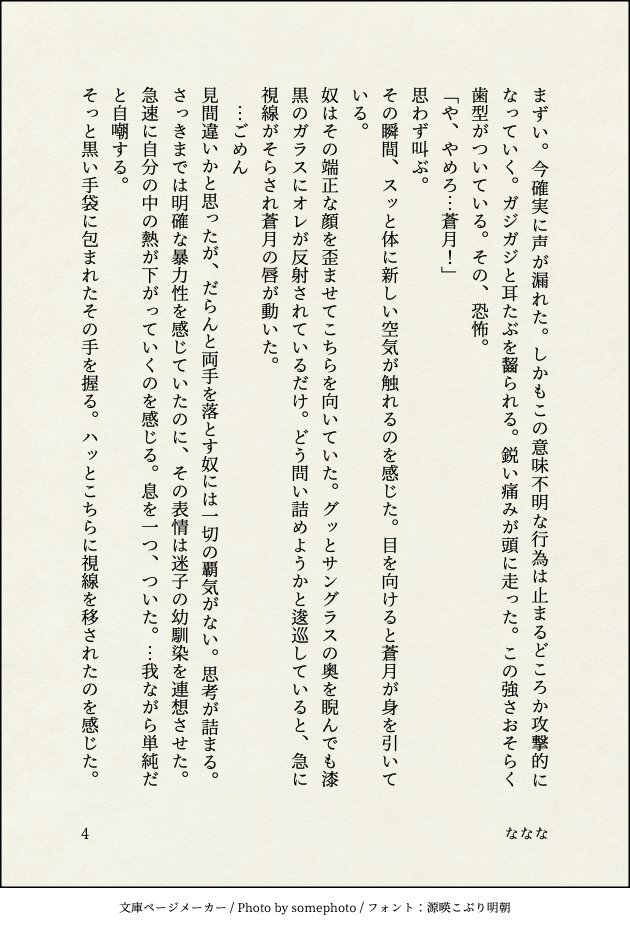 まずい。今確実に声が漏れた。しかもこの意味不明な行為は止まるどころか攻撃的に
なっていく。ガジガジと耳たぶを齧られる。鋭い痛みが頭に走った。この強さおそらく
歯型がついている。その、恐怖。
「や、やめろ…蒼月！」
思わず叫ぶ。
その瞬間、スッと体に新しい空気が触れるのを感じた。目を向けると蒼月が身を引いて
いる。
奴はその端正な顔を歪ませてこちらを向いていた。グッとサングラスの奥を睨んでも漆
黒のガラスにオレが反射されているだけ。どう問い詰めようかと逡巡していると、急に
視線がそらされ蒼月の唇が動いた。
…ごめん
見間違いかと思ったが、だらんと両手を落とす奴には一切の覇気がない。思考が詰まる。
さっきまでは明確な暴力性を感じていたのに、その表情は迷子の幼馴染を連想させた。
急速に自分の中の熱が下がっていくのを感じる。息を一つ、ついた。…我ながら単純だ
と自嘲する。
そっと黒い手袋に包まれたその手を握る。ハッとこちらに視線を移されたのを感じた。
ななな
4
文庫ページメーカー / Photo by somephoto / フォント：源暎こぶり明朝